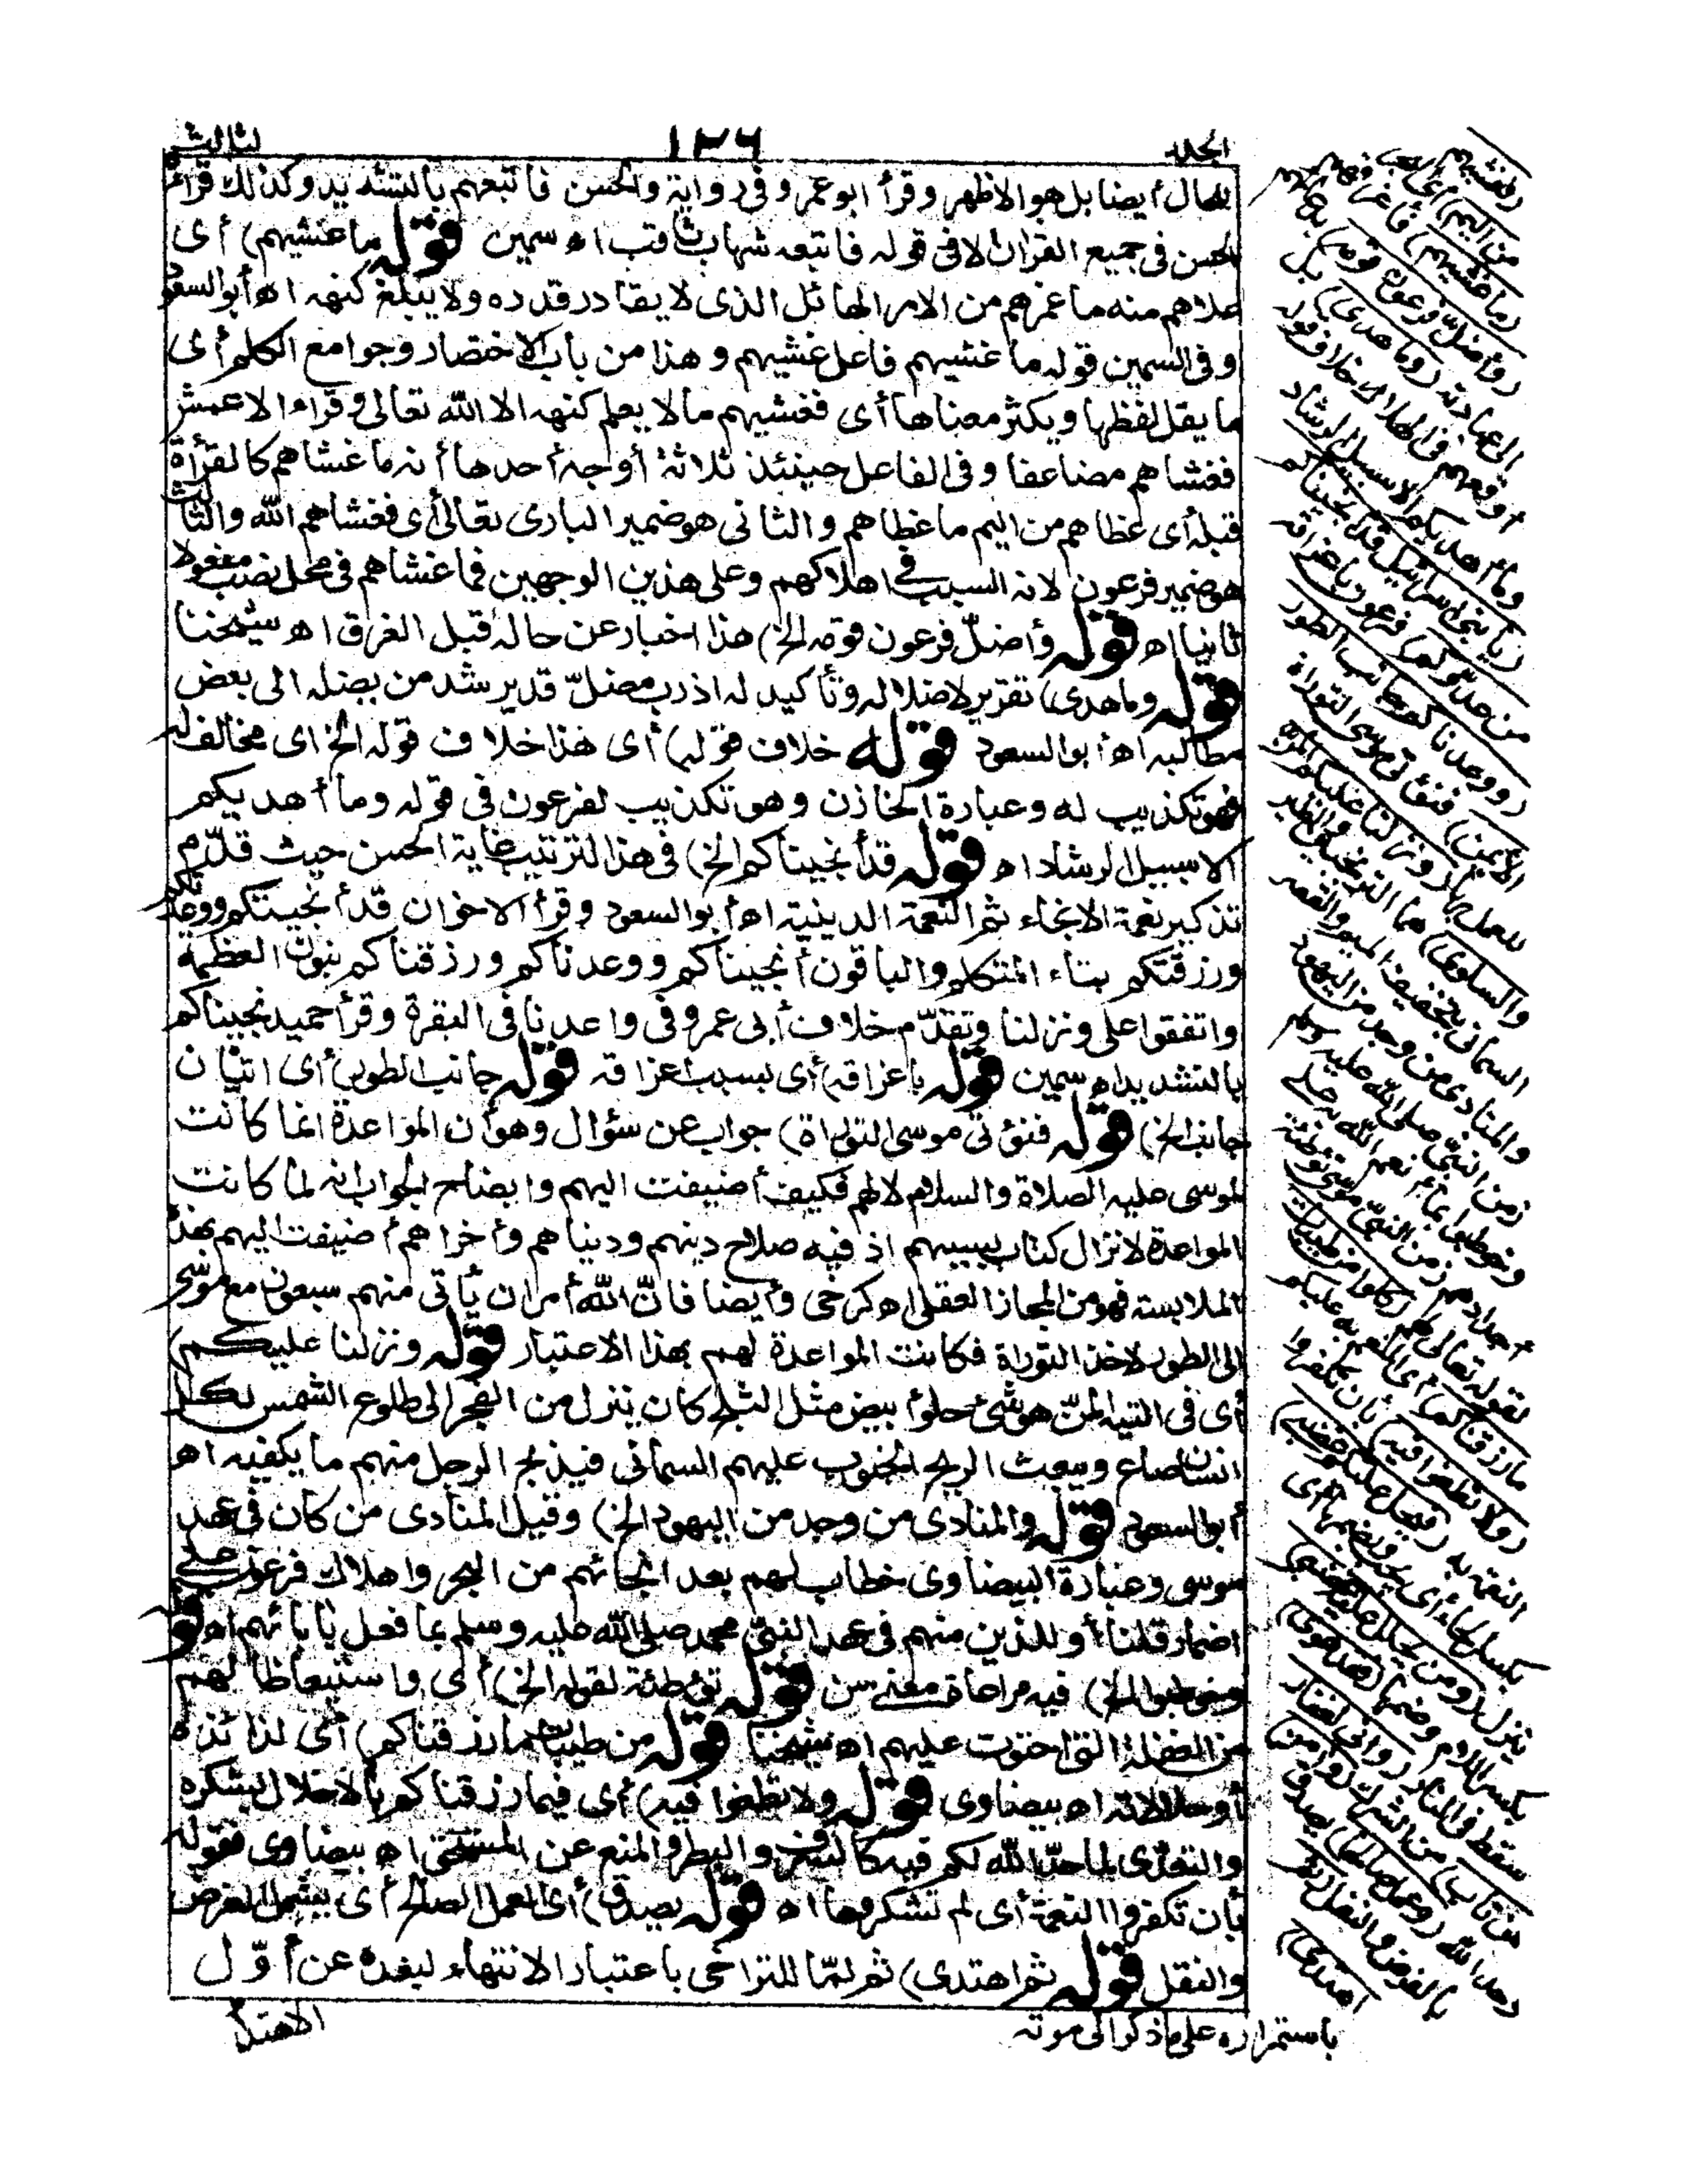 الجلد
١٣٦
الثالث
للحال أيضا بل هو الاظهر وقرأ ابو عمرو فى رواية والحسن فاتبعهم بالتشديد وكذلك قراءة
الحسن فى جميع القران الا فى قوله فاتبعه شهاب ثاقب اه سمين قوله ما غشيهم) أى
علاهم منه ما غمرهم من الامر الهائل الذى لا يقادر قدره ولا يبلغ كنهه اه أبو السعود
وفى السمين قوله ما غشيهم فاعل غشيهم وهذا من باب الاختصار وجوامع الكلم أى
ما يقل لفظها ويكثر معناها أى فغشيهم ما لا يعلم كنهه الا الله تعالى وقراء الاعمش
فغشاهم مضاعفا وفى الفاعل حينئذ ثلاثة أوجه أحدها أنه ما غشاهم كالقرأة
قبله أى غطاهم من اليم ما غطاهم والثانى هو ضمير البارى تعالى أى فغشاهم الله والثالث
هو ضمير فرعون لانه السبب فى اهلاكهم وعلى هذين الوجهين فما غشاهم فى محل نصب مفعولا
ثانيا اه قوله وأضلّ فرعون قومه الخ) هذا اخبار عن حاله قبل الغرق اه شيخنا
قوله وما هدى) تقرير لاضلاله وتأكيد له اذ رب مضلّ قد يرشد من يضله الى بعض
مطالبه اه أبو السعود قوله خلاف قوله) أى هذا خلاف قوله الخ اى مخالف له
فهو تكذيب له وعبارة الخازن وهو تكذيب لفرعون فى قوله وما أهديكم
الا سبيل الرشاد اه قوله قد أنجيناكم الخ) فى هذا الترتيب غاية الحسن حيث قدّم
تذكير نعمة الانجاء ثم النعمة الدينية اه أبو السعود وقرأ الاخوان قد أنجيتكم ووعدتكم
ورزقتكم بتاء المتكلم والباقون أنجيناكم ووعدناكم ورزقناكم بنون العظمة
واتفقوا على ونزلنا وتقدّم خلاف أبى عمرو فى واعدنا فى البقرة وقرأ حميد نجيناكم
بالتشديد اه سمين قوله باغراقه) أى بسبب اغراقه قوله جانب الطور) أى اتيان
جانب الخ) قوله فنؤتى موسى التوراة) جواب عن سؤال وهو أن المواعدة انما كانت
لموسى عليه الصلاة والسلام لا لهم فكيف أضيفت اليهم وايضاح الجواب انه لما كانت
المواعدة لانزال كتاب بسببهم اذ فيه صلاح دينهم ودنياهم وأخراهم أضيفت اليهم بهذه
الملابسة فهو من المجاز العقلى اه كرخى وأيضا فانّ الله أمر ان يأتى منهم سبعون مع موسى
الى الطور لاخذ التوراة فكانت المواعدة لهم بهذا الاعتبار قوله ونزلنا عليكم)
أى فى التيه المنّ هو شئ حلو أبيض مثل الثلج كان ينزل من الفجر الى طلوع الشمس لكل
انسان صاع ويبعث الريح الجنوب عليهم السمانى فيذبح الرجل منهم ما يكفيه اه
أبو السعود قوله والمنادى من وجد من اليهود الخ) وقيل المنادى من كان فى عهد
موسى وعبارة البيضاوى خطاب لهم بعد انجائهم من البحر واهلاك فرعون على
اضمار قلنا أو للذين منهم فى عهد النبىّ محمد صلى الله عليه وسلم بما فعل بآبائهم اه قوله
وخوطبوا الخ) فيه مراعاة معنى من قوله توطئة لقوله الخ) أى واستيعاظا لهم
من الغفلة التى احتوت عليهم اه شيخنا قوله من طيبات ما رزقناكم) أى لذائذه
أو حلالاته اه بيضاوى قوله ولا تطغوا فيه) أى فيما رزقناكم بالاخلال بشكره
والتعدّى لما حدّ الله لكم فيه كالسرف والبطر والمنع عن المستحق اه بيضاوى فقوله
بأن تكفروا النعمة أى لم تشكروها اه قوله يصدق) أى العمل الصالح أى يشمل الفرض
والنفل قوله ثم اهتدى) ثم امّا للتراخى باعتبار الانتهاء لبعده عن أوّل
الاهتداء
من اليم) أى
(ما غشيهم) فاغرقهم
(وأضلّ فرعون قومه)
الى عبادته (وما هدى)
أوقعهم فى الهلاك خلاف قوله
وما أهديكم الا سبيل الرشاد
(يا بنى اسرائيل قد أنجيناكم
من عدوّكم) فرعون باغراقه
(ووعدناكم جانب الطور
الايمن) فنؤتى موسى التوراة
للعمل بها (ونزلنا عليكم المنّ
والسلوى) هما الترنجبين والطير
السمانى بتخفيف الميم والقصر
والمنادى من وجد من اليهود
زمن النبىّ صلى الله عليه وسلم
وخوطبوا بما أنعم الله به على
أجدادهم زمن النبىّ موسى توطئة
لقوله تعالى لهم (كلوا من طيبات
ما رزقناكم) أى المنعم به عليكم
(ولا تطغوا فيه) بأن تكفروا
النعمة به (فيحل عليكم غضبى)
بكسر الحاء أى يجب وبضمها أى
ينزل (ومن يحلل عليه غضبى)
بكسر اللام وضمها (فقد هوى)
سقط فى النار (وانى لغفار
لمن تاب) من الشرك (وآمن)
وحد الله (وعمل صالحا) يصدق
بالفرض والنفل (ثم
اهتدى)
باستمراره على ما ذكر الى موته